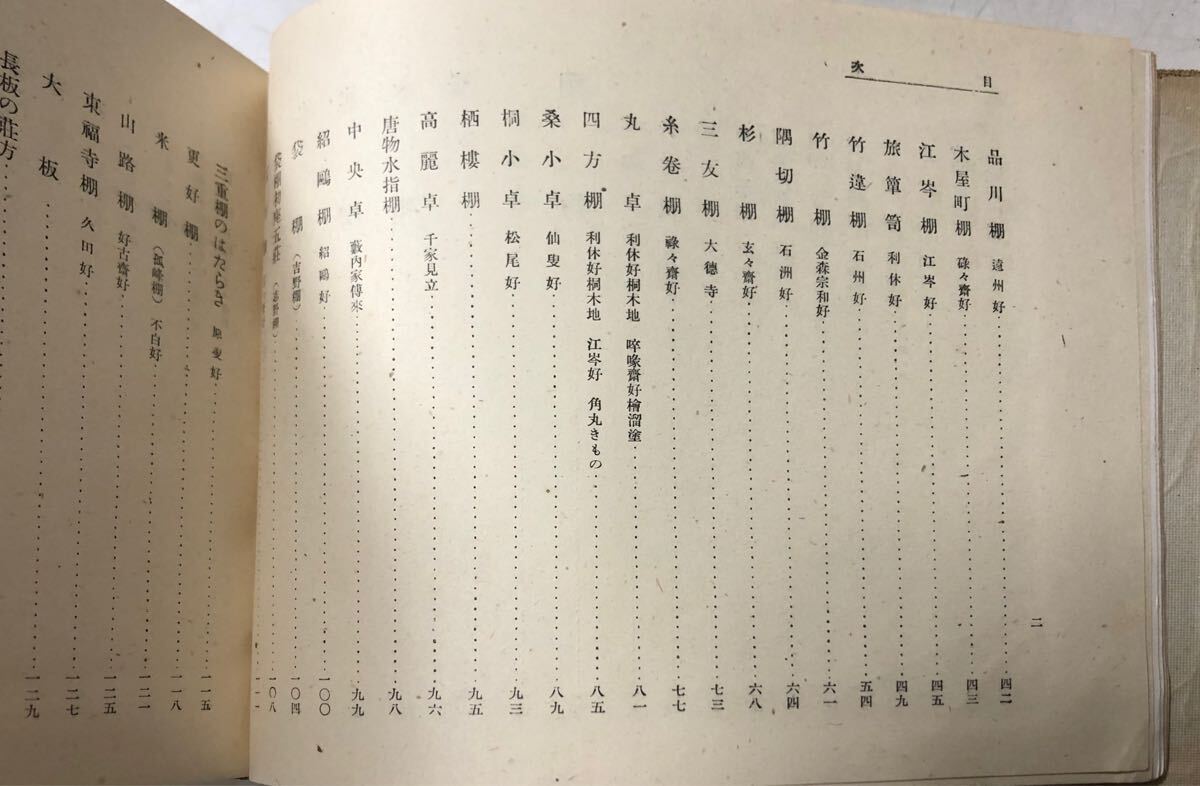 目次
品川棚 遠州好 四二
木屋町棚 碌々齋好 四三
江岑棚 江岑好 四五
旅簞笥 利休好 四九
竹違棚 石州好 五四
竹棚 金森宗和好 六一
隅切棚 石洲好 六四
杉棚 玄々齋好 六八
三友棚 大德寺 七三
糸卷棚 祿々齋好 七七
丸卓 利休好桐木地 啐喙齋好檜溜塗 八一
四方棚 利休好桐木地 江岑好 角丸きもの 八五
桑小卓 仙叟好 八九
桐小卓 松尾好 九三
栖樓棚 九五
高麗卓 千家見立 九六
唐物水指棚 九八
中央卓 藪内家傳來 九九
紹鷗棚 紹鷗好 一〇〇
袋棚 (吉野棚) 一〇四
一〇八
二
三重棚のはたらき 一一五
更好棚 一一八
米棚 (孤峰棚) 不白好 一二一
山路棚 好古齋好 一二五
東福寺棚 久田好 一二七
大板 一二九
長板の莊方